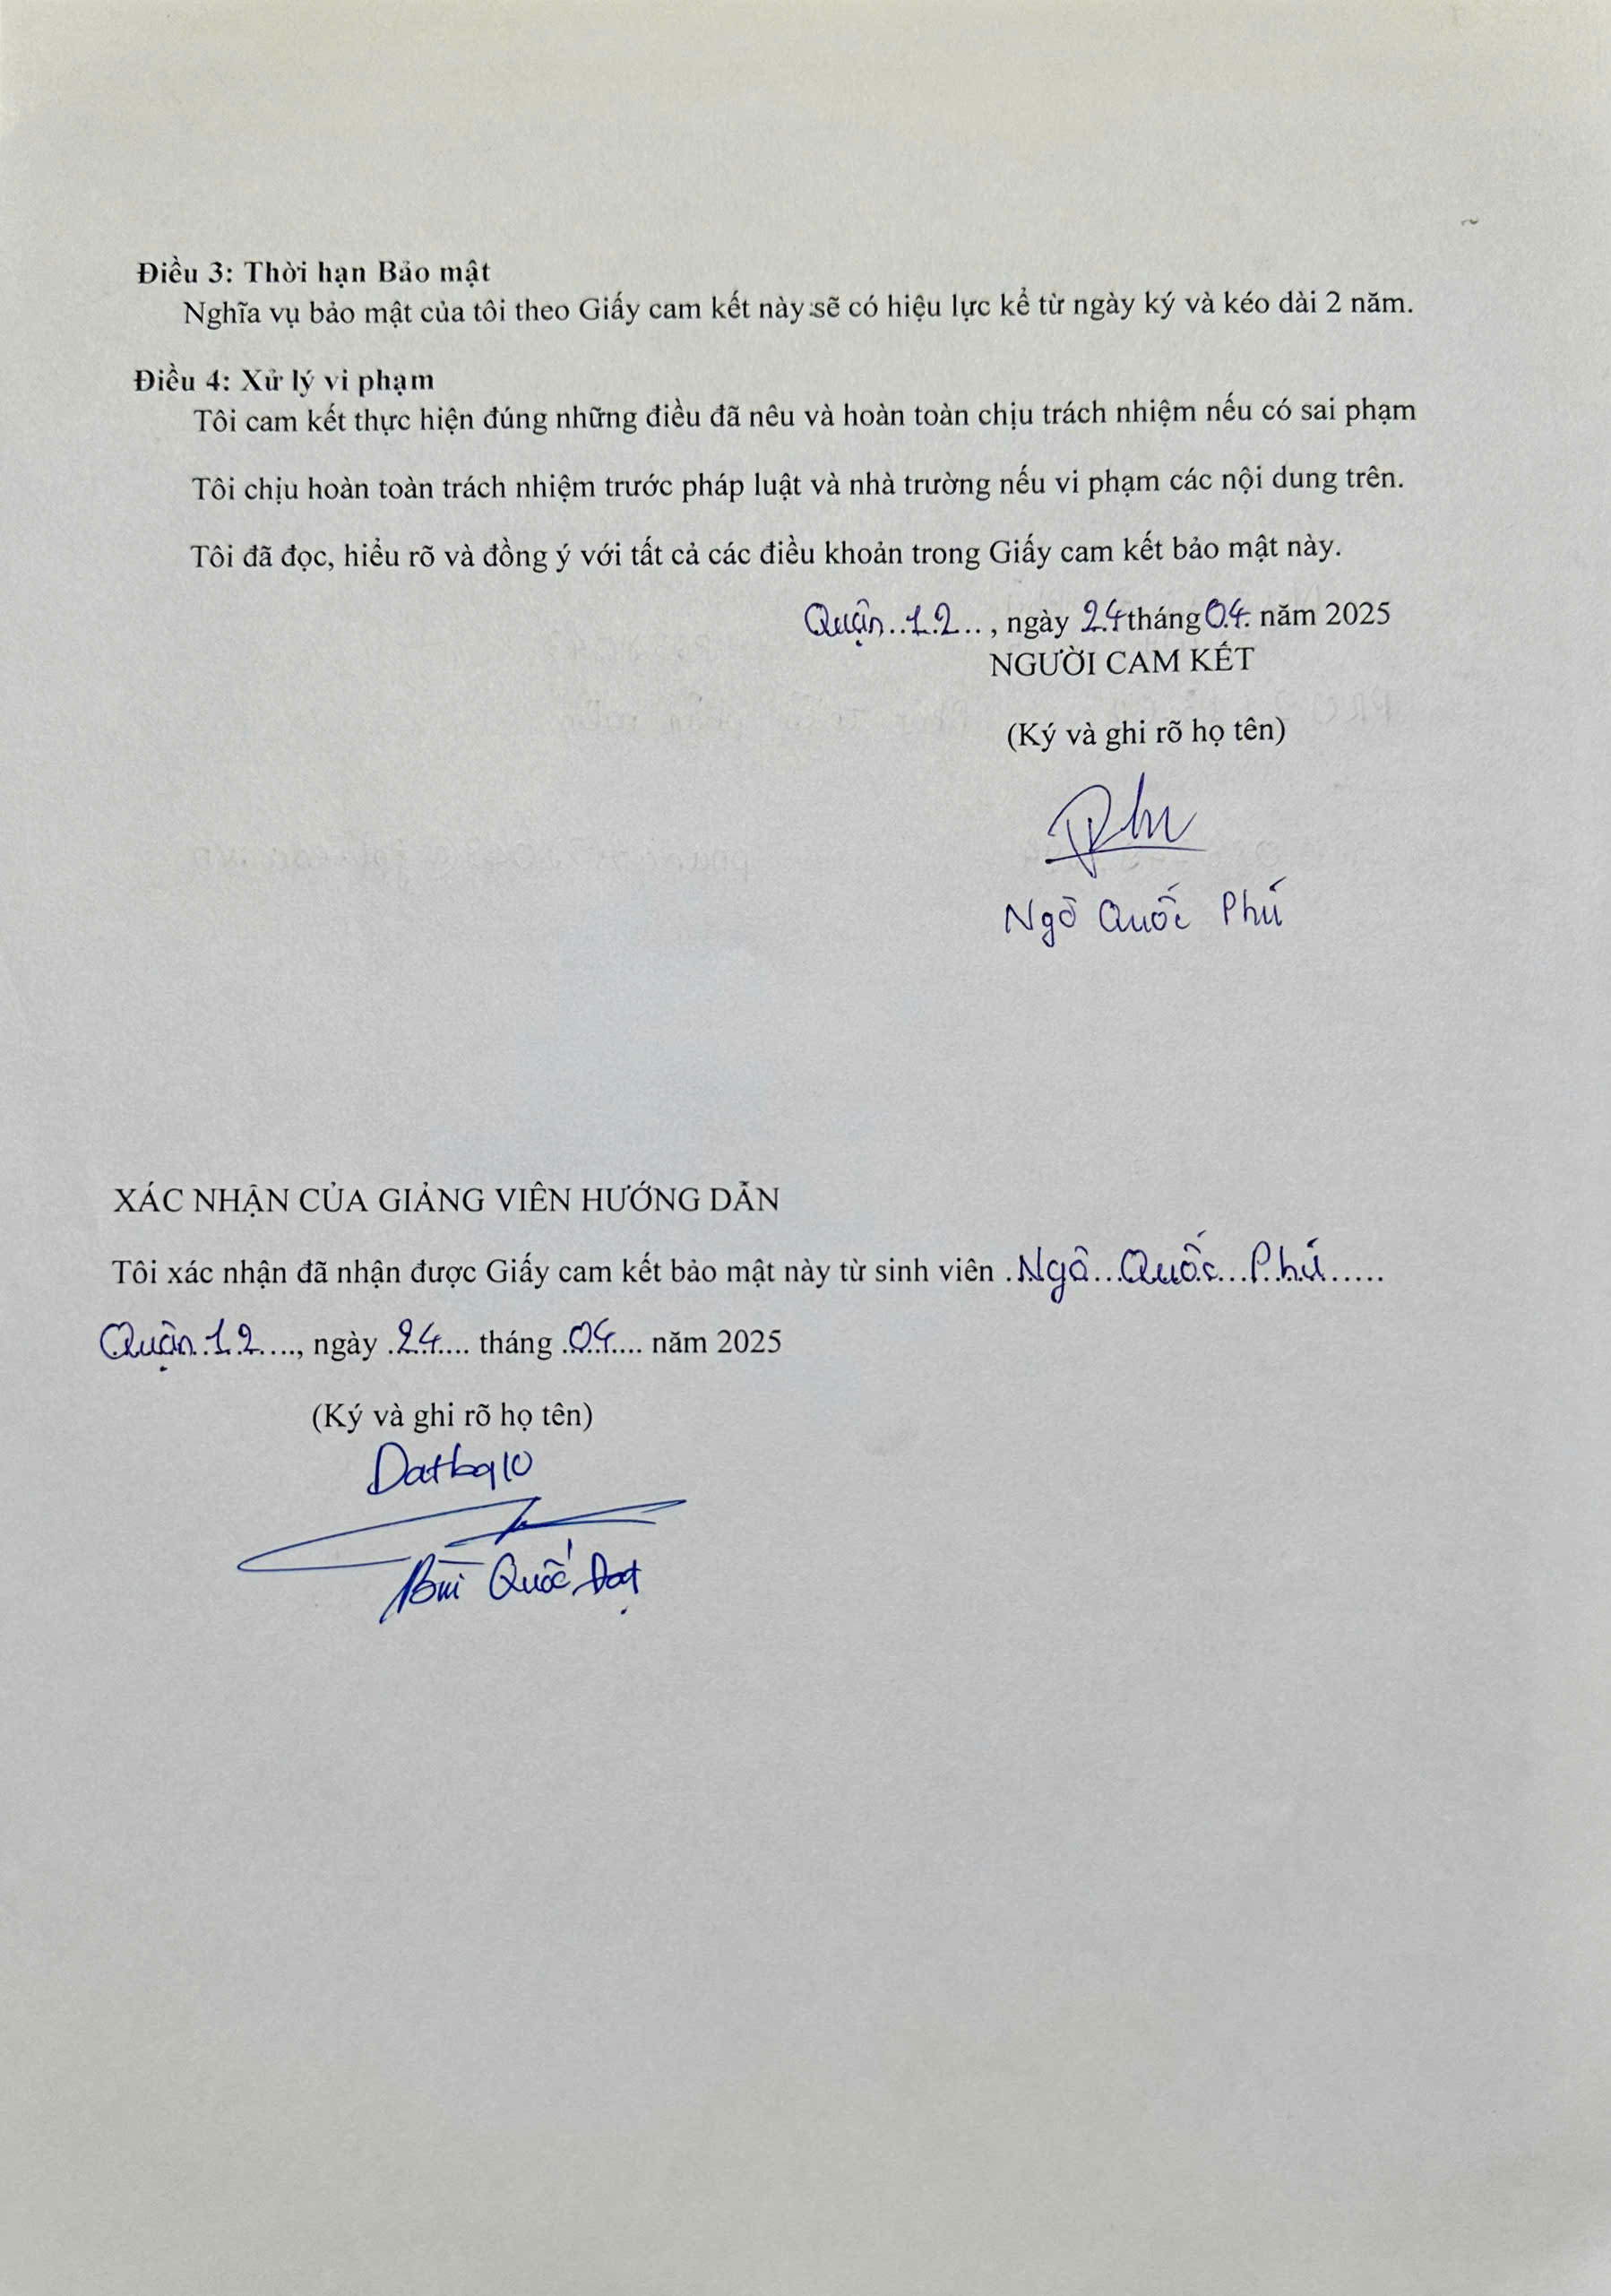 Điều 3: Thời hạn Bảo mật
Nghĩa vụ bảo mật của tôi theo Giấy cam kết này sẽ có hiệu lực kể từ ngày ký và kéo dài 2 năm.
Điều 4: Xử lý vi phạm
Tôi cam kết thực hiện đúng những điều đã nêu và hoàn toàn chịu trách nhiệm nếu có sai phạm
Tôi chịu hoàn toàn trách nhiệm trước pháp luật và nhà trường nếu vi phạm các nội dung trên.
Tôi đã đọc, hiểu rõ và đồng ý với tất cả các điều khoản trong Giấy cam kết bảo mật này.
Quận 12..., ngày 24 tháng 04 năm 2025
NGƯỜI CAM KẾT
(Ký và ghi rõ họ tên)
Phu
Ngô Quốc Phú
XÁC NHẬN CỦA GIẢNG VIÊN HƯỚNG DẪN
Tôi xác nhận đã nhận được Giấy cam kết bảo mật này từ sinh viên .Ngô...Quốc...Phú......
Quận 12...., ngày .24.... tháng .04.... năm 2025
(Ký và ghi rõ họ tên)
Datbq10
Bùi Quốc Đạt